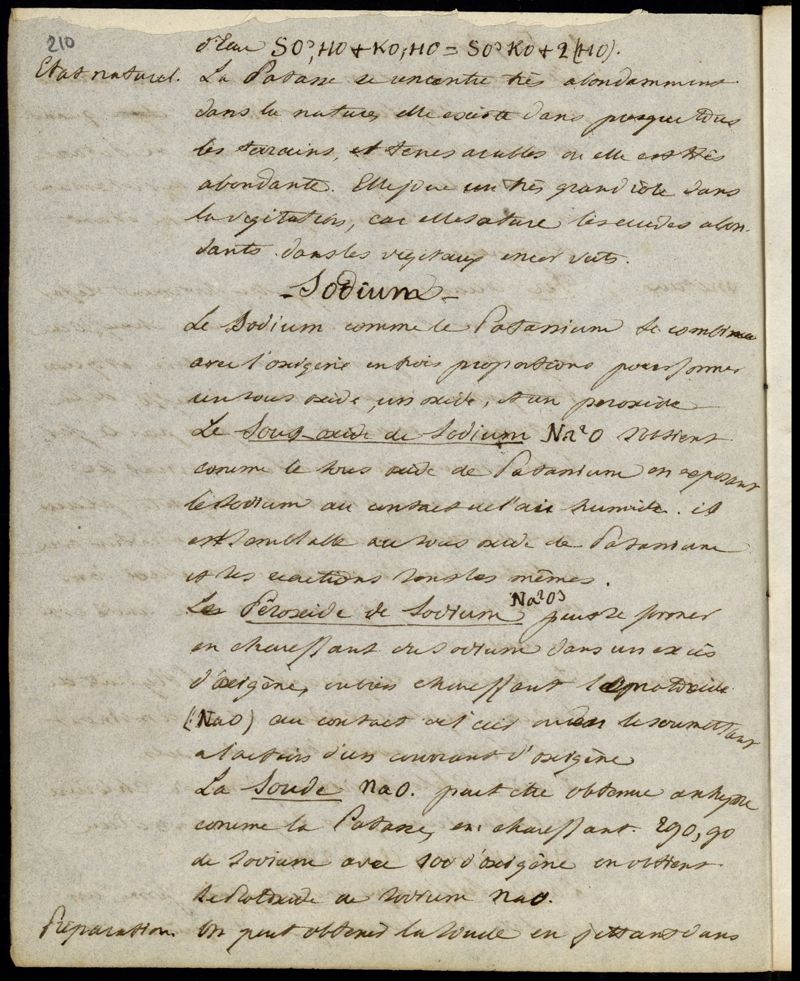 210
d'Eau SO³,HO + KO,HO = SO³KO + 2(HO).
Etat naturel. La Potasse se rencontre très abondamment
dans la nature, elle existe dans presque tous
les terrains, et terres arables ou elle est très
abondante. Elle joue un très grand rôle dans
la végétation, car elle sature les acides abon-
dants dans les végétaux encor verts.
- Sodium -
Le Sodium comme le Potassium se combine
avec l'oxigène en trois proportions pour former
un sous oxide, un oxide, et un peroxide
Le Sous-oxide de Sodium Na²O s'obtient
comme le sous oxide de Potassium en exposant
le sodium au contact de l'air humide. il
est semblable au sous oxide de Potassium
et les réactions sont les mêmes.
Le Péroxide de Sodium Na²O³ peut se former
en chauffant du sodium dans un excès
d'oxigène, ou bien chauffant le protoxide
(NaO) au contact de l'air ou en le soumettant
a l'action d'un courrant d'oxigène
La Soude NaO. peut être obtenue anhydre
comme la Potasse, en chauffant 290,90
de sodium avec 100 d'oxigène on obtient
le Protoxide de sodium NaO.
Préparation. On peut obtenir la soude en jettant dans